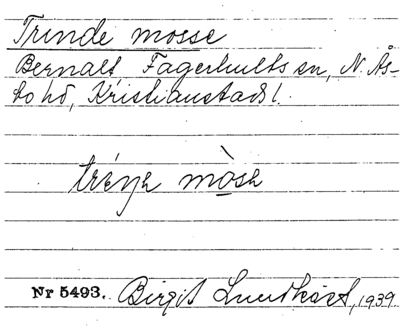 Trinde mosse
Bernalt, Fagerhults sn, N. Ås-
bo hd, Kristianstads l.
mòse
Nr 5493. Birgit Lundkvist, 1939